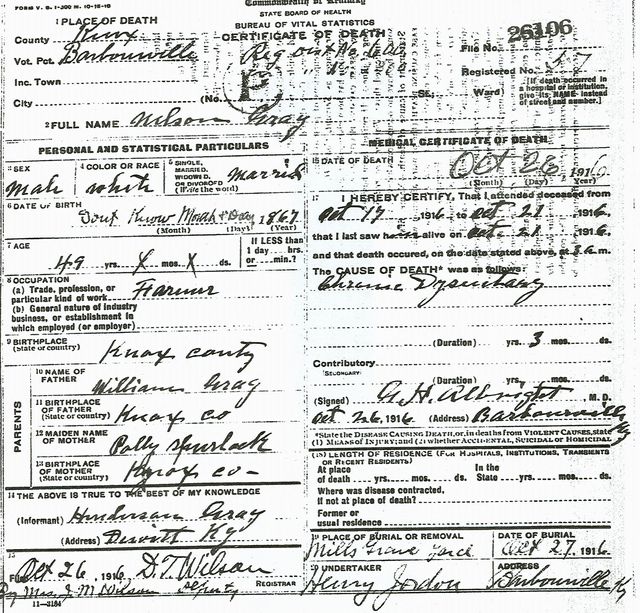 FORM V. S. 1-300 M. 10-16-16
Commonwealth of Kentucky
STATE BOARD OF HEALTH
BUREAU OF VITAL STATISTICS
CERTIFICATE OF DEATH
1 PLACE OF DEATH
County Knox
Vot. Pct. Barbourville
Inc. Town
City (No. St., Ward)
File No. 26106
Registered No. 57
[If death occurred in a hospital or institution, give its NAME instead of street and number.]
2 FULL NAME Nelson Gray
PERSONAL AND STATISTICAL PARTICULARS
3 SEX Male
4 COLOR OR RACE white
5 SINGLE, MARRIED, WIDOWED, OR DIVORCED (Write the word) Married
6 DATE OF BIRTH Dont Know Month & Day 1867
(Month) (Day) (Year)
7 AGE 49 yrs. X mos. X ds.
If LESS than 1 day hrs. or min.?
8 OCCUPATION
(a) Trade, profession, or particular kind of work Farmer
(b) General nature of industry business, or establishment in which employed (or employer)
9 BIRTHPLACE (State or country) Knox county
PARENTS
10 NAME OF FATHER William Gray
11 BIRTHPLACE OF FATHER (State or country) Knox co
12 MAIDEN NAME OF MOTHER Polly Spurlock
13 BIRTHPLACE OF MOTHER (State or country) Knox co -
14 THE ABOVE IS TRUE TO THE BEST OF MY KNOWLEDGE
(Informant) Henderson Gray
(Address) Dewitt Ky
15
Filed Oct 26, 1916 D.T. Wilson
REGISTRAR
By Mrs. J. M. Wilson Deputy
11-3184
MEDICAL CERTIFICATE OF DEATH
16 DATE OF DEATH Oct 26 1916
(Month) (Day) (Year)
17 I HEREBY CERTIFY, That I attended deceased from
Oct 17 1916, to Oct 21 1916,
that I last saw him alive on Oct 21 1916,
and that death occurred, on the date stated above, at 3 a.m.
The CAUSE OF DEATH* was as follows:
Chronic Dysentary
(Duration) yrs. 3 mos. ds.
Contributory
SECONDARY
(Duration) yrs. mos. ds.
(Signed) G. H. Albright M. D.
Oct 26, 1916 (Address) Barbourville Ky
*State the DISEASE CAUSING DEATH, or, in deaths from VIOLENT CAUSES, state
(1) MEANS OF INJURY; and (2) whether ACCIDENTAL, SUICIDAL or HOMICIDAL
18 LENGTH OF RESIDENCE (FOR HOSPITALS, INSTITUTIONS, TRANSIENTS OR RECENT RESIDENTS)
At place of death yrs. mos. ds. In the State yrs. mos. ds.
Where was disease contracted, if not at place of death?
Former or usual residence
19 PLACE OF BURIAL OR REMOVAL Mills Grave Yard
DATE OF BURIAL Oct 27, 1916
20 UNDERTAKER Henry Jordon
ADDRESS Barbourville Ky